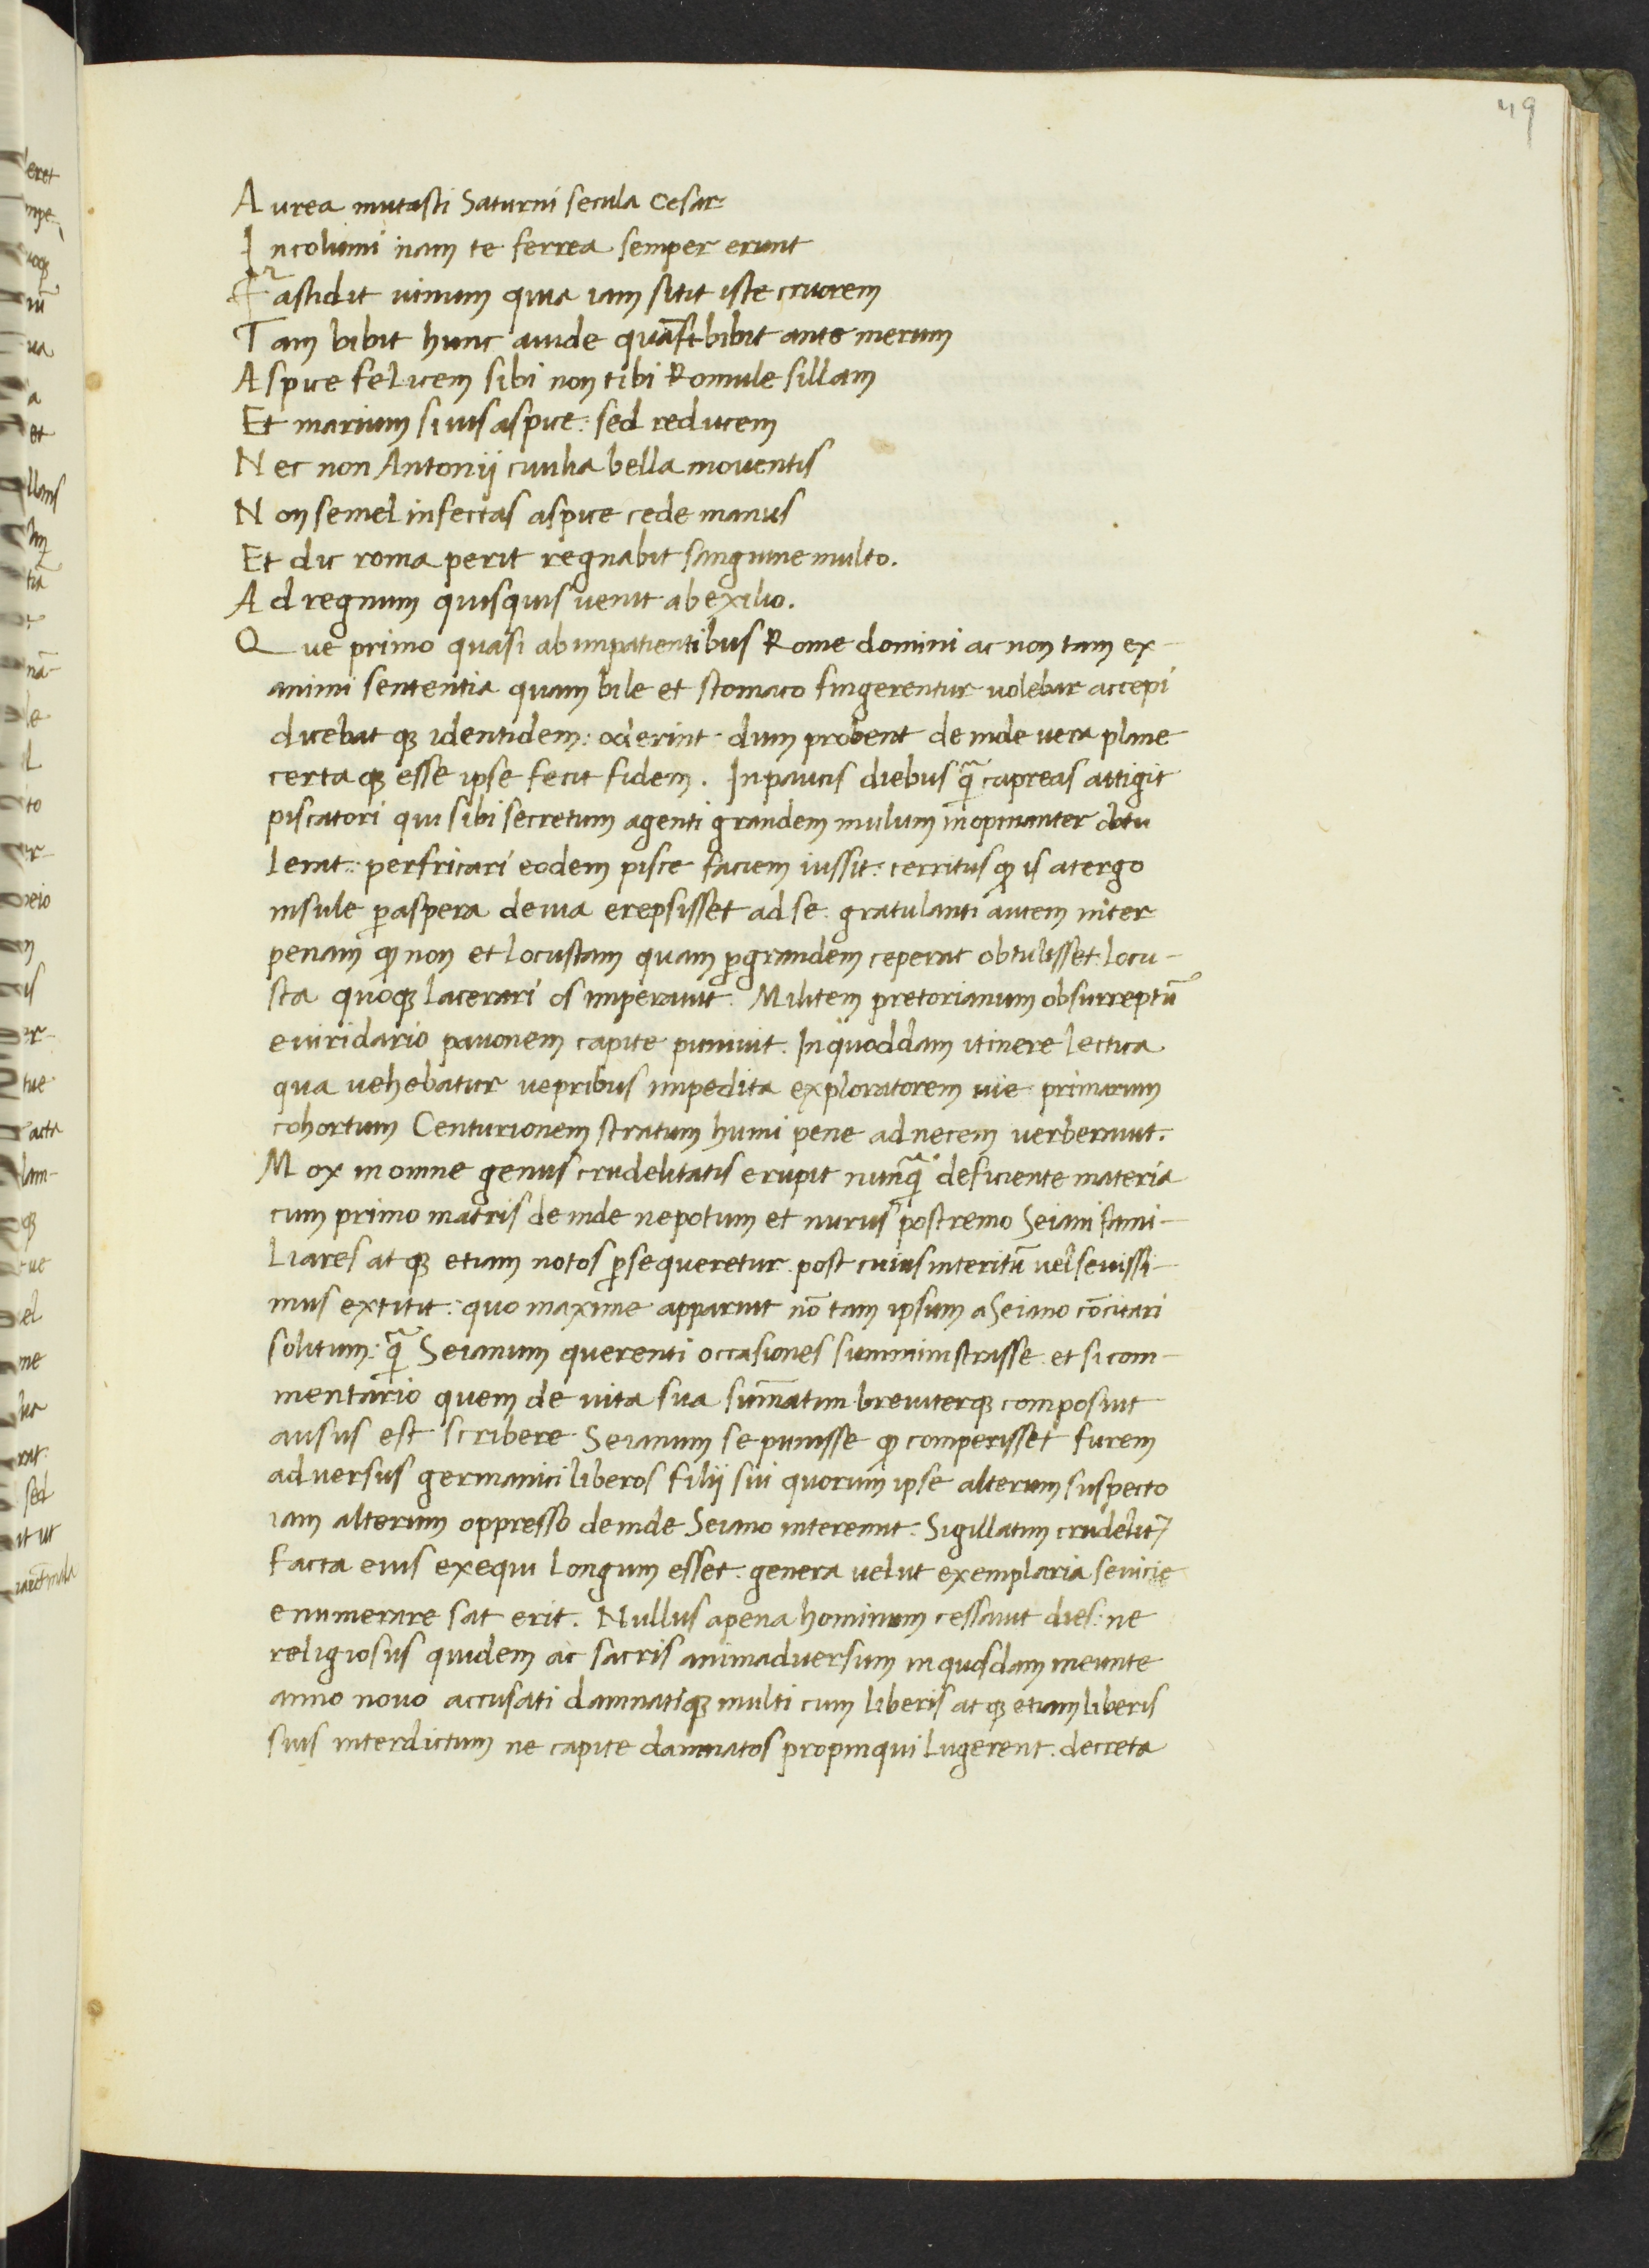 49
Aurea mutasti Saturni secula Cesar
Incolumi nam te ferrea semper erunt
Fastidit uinum quia iam sitit iste cruorem
Tam bibit hunc auide quāsi bibit ante merum
Aspice felicem sibi non tibi Romule sillam
Et marium si uis aspice: sed reducem
Nec non Antonij ciuilia bella mouentis
Non semel infectas aspice cede manus
Et dic roma perit regnabit sanguine multo.
Ad regnum quisquis uenit ab exilio.
Que primo quasi ab impatientibus Rome domini ac non tam ex-
animi sententia quam bile et stomaco fingerentur uolebat accepi
dicebat qꝫ identidem: oderint dum probent deinde uera plane
certa qꝫ esse ipse fecit fidem. In paucis diebus q̄ capreas attigit
piscatori qui sibi secretum agenti grandem mulum inopinanter obtu
lerat: perfricari eodem pisce faciem iussit: territus ꝙ is atergo
insule ꝑ aspera deuia erepsisset ad se. gratulanti autem inter
penam ꝙ non et locustam quam ꝑgrandem ceperat obtulisset locu-
sta quoqꝫ lacerari os imperauit. Militem pretorianum ob surreptū
e uiridario pauonem capite puniuit. In quoddam itinere lectica
qua uehebatur uepribus impedita exploratorem uie primarum
cohortum Centurionem stratum humi pene ad necem uerberauit.
Mox in omne genus crudelitatis erupit nunq̄ deficiente materia
cum primo matris deinde nepotum et nurus postremo Seiani fami-
liares at qꝫ etiam notos ꝑsequeretur. post cuius interitū uel seuissi-
mus extitit. quo maxime apparuit nō tam ipsum a Seiano cōcitari
solitum: q̄ Seianum querenti occasiones sumministrasse. et si com-
mentario quem de uita sua sum̄atim breuiterqꝫ composuit
ausus est scribere Seianum se punisse ꝙ comperisset furem
aduersus germanici liberos filij sui quorum ipse alterum suspecto
iam alterum oppresso deinde Seiano interemit. Sigillatim crudelit̃
facta eius exequi longum esset. genera uelut exemplaria seuicie
enumerare sat erit. Nullus a pena hominum cessauit dies: ne
religiosus quidem ac sacris animaduersum in quosdam ineunte
anno nouo accusati damnatiqꝫ multi cum liberis at qꝫ etiam liberis
suis interdictum ne capite damnatos propinqui lugerent. decreta